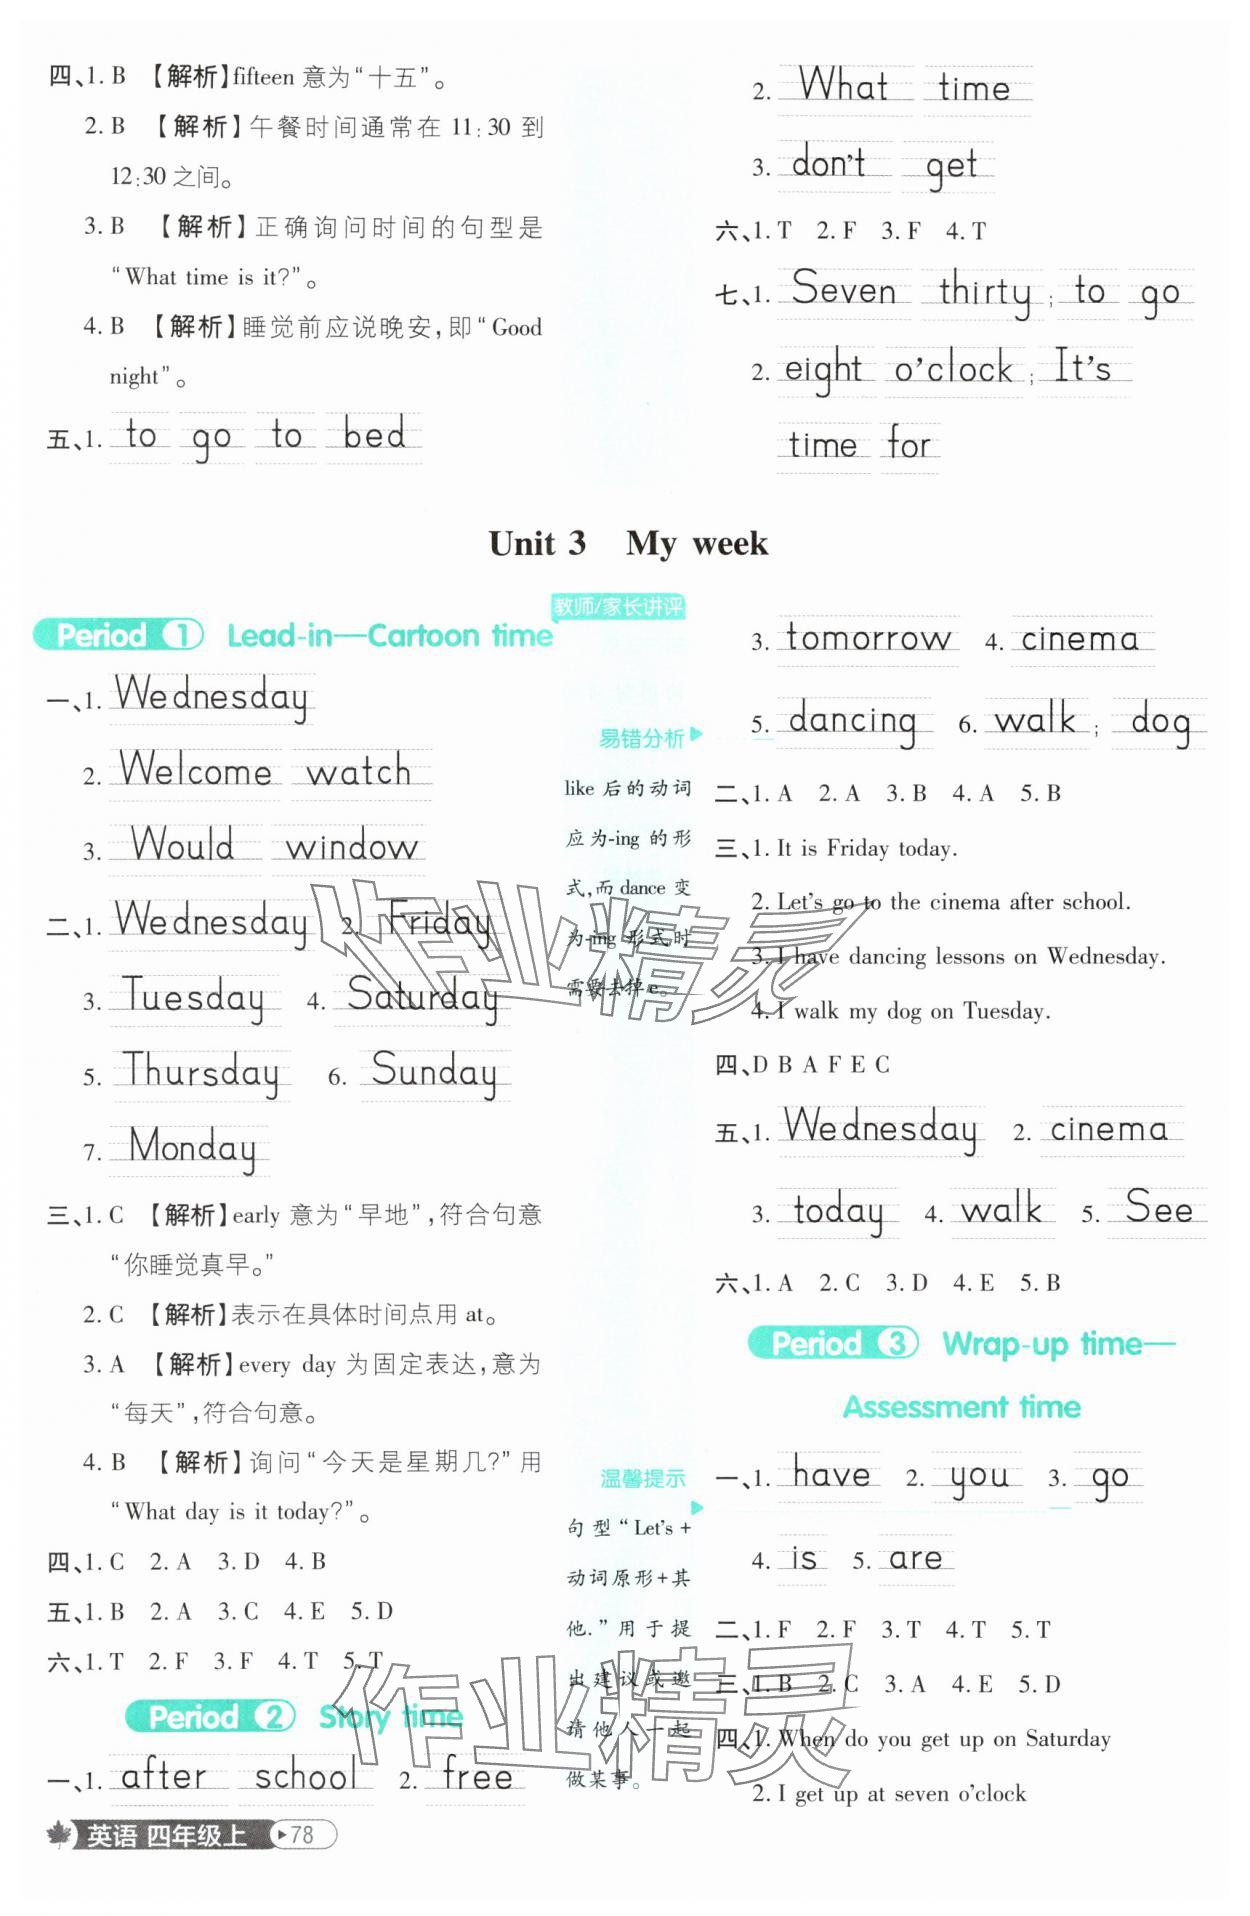 四、1. B 【解析】fifteen 意为“十五”。
2. B 【解析】午餐时间通常在 11:30 到
12:30 之间。
3. B 【解析】正确询问时间的句型是
“What time is it?”。
4. B 【解析】睡觉前应说晚安,即“Good
night”。
五、1. to go to bed
2. What time
3. don't get
六、1. T 2. F 3. F 4. T
七、1. Seven thirty ; to go
2. eight o'clock ; It's
time for
Unit 3 My week
教师/家长讲评
Period 1 Lead-in—Cartoon time
一、1. Wednesday
2. Welcome watch
3. Would window
二、1. Wednesday 2. Friday
3. Tuesday 4. Saturday
5. Thursday 6. Sunday
7. Monday
三、1. C 【解析】early 意为“早地”,符合句意
“你睡觉真早。”
2. C 【解析】表示在具体时间点用 at。
3. A 【解析】every day 为固定表达,意为
“每天”,符合句意。
4. B 【解析】询问“今天是星期几?”用
“What day is it today?”。
四、1. C 2. A 3. D 4. B
五、1. B 2. A 3. C 4. E 5. D
六、1. T 2. F 3. F 4. T 5. T
Period 2 Story time
一、1. after school 2. free
易错分析
like 后的动词
应为-ing 的形
式,而 dance 变
为-ing 形式时
需要去掉 e。
温馨提示
句型“Let's +
动词原形+其
他.”用于提
出建议或邀
请他人一起
做某事。
3. tomorrow 4. cinema
5. dancing 6. walk ; dog
二、1. A 2. A 3. B 4. A 5. B
三、1. It is Friday today.
2. Let's go to the cinema after school.
3. I have dancing lessons on Wednesday.
4. I walk my dog on Tuesday.
四、D B A F E C
五、1. Wednesday 2. cinema
3. today 4. walk 5. See
六、1. A 2. C 3. D 4. E 5. B
Period 3 Wrap-up time—
Assessment time
一、1. have 2. you 3. go
4. is 5. are
二、1. F 2. F 3. T 4. T 5. T
三、1. B 2. C 3. A 4. E 5. D
四、1. When do you get up on Saturday
2. I get up at seven o'clock
英语 四年级上 78
作业精灵
作业精灵